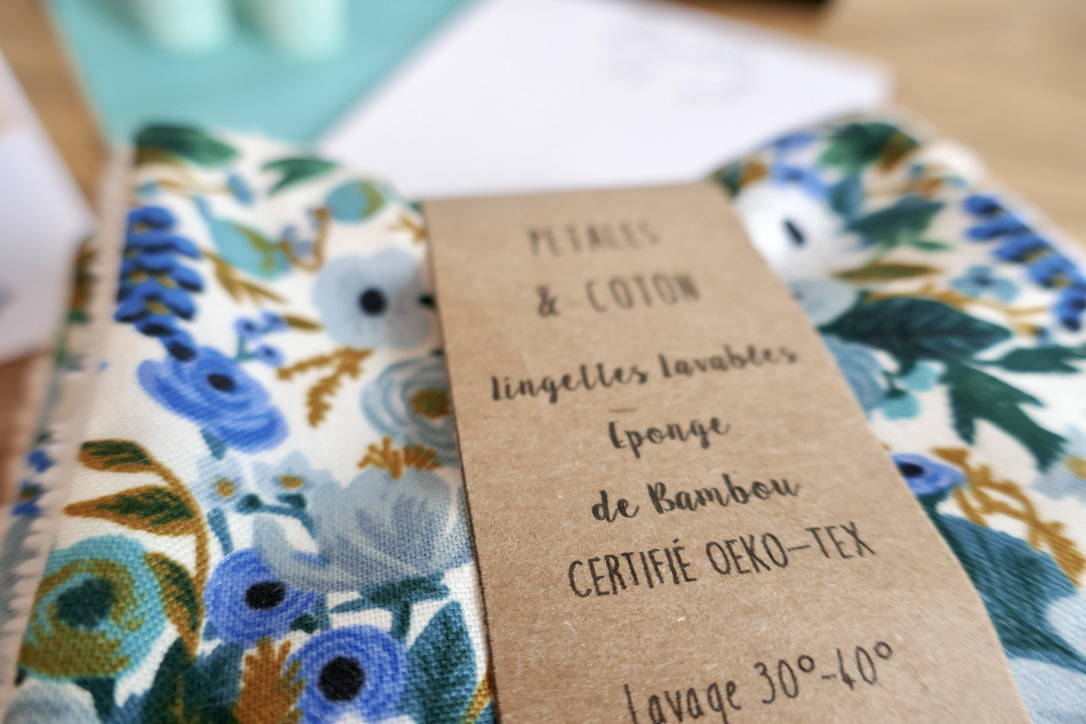 PETALES
& COTON
Lingettes lavables
Eponge
de Bambou
CERTIFIÉ OEKO-TEX
Lavage 30°-40°